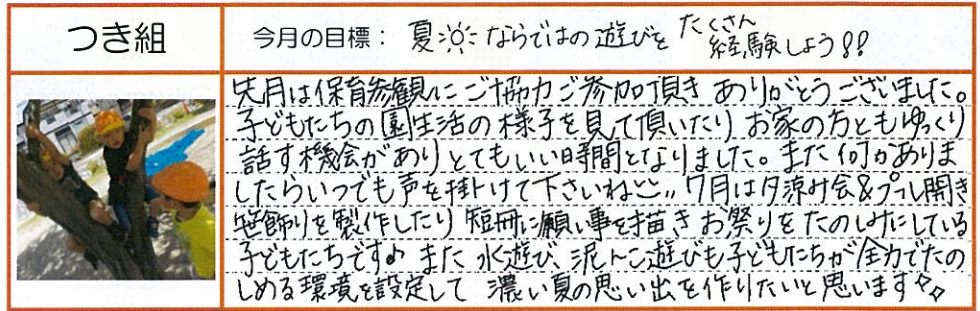 つき組
今月の目標： 夏ならではの遊びをたくさん経験しよう!!
先月は保育参観にご協力ご参加頂き ありがとうございました。
子どもたちの園生活の様子を見て頂いたり お家の方ともゆっくり
話す機会がありとてもいい時間となりました。また何かありま
したらいつでも声を掛けて下さいね 7月は夕涼み会&プール開き
笹飾りを製作したり 短冊に願い事を描き お祭りをたのしみにしている
子どもたちです♪ また 水遊び、泥んこ遊びも子どもたちが全力でたの
しめる環境を設定して 濃い夏の思い出を作りたいと思います